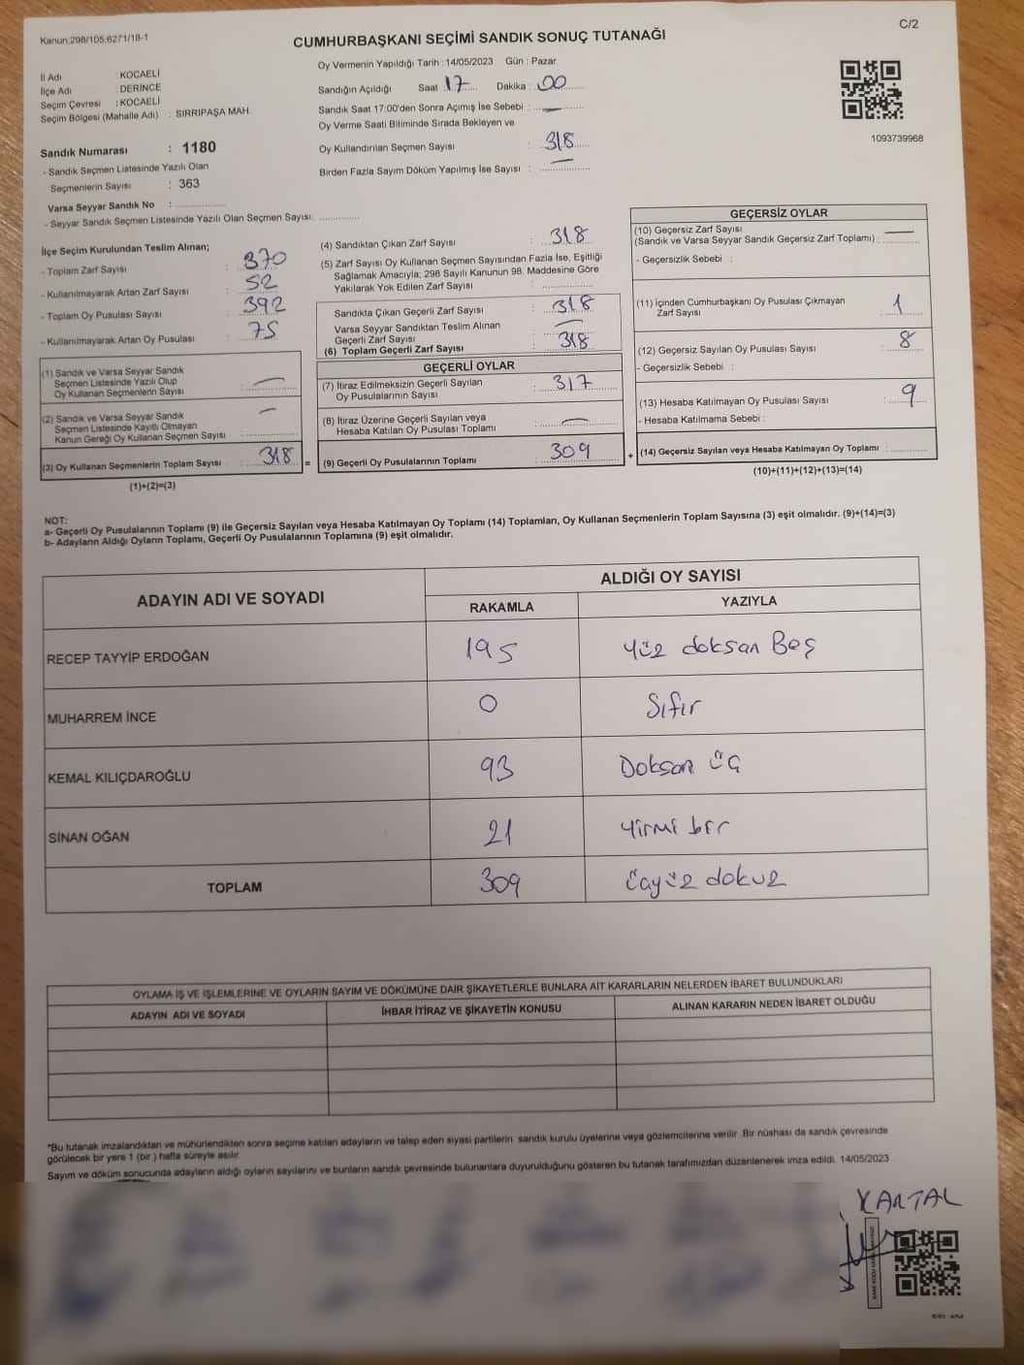 C/2
Kanun:298/105,6271/18-1
CUMHURBAŞKANI SEÇİMİ SANDIK SONUÇ TUTANAĞI
İl Adı : KOCAELİ
İlçe Adı : DERİNCE
Seçim Çevresi : KOCAELİ
Seçim Bölgesi (Mahalle Adı) : SIRRIPAŞA MAH.
Sandık Numarası : 1180
- Sandık Seçmen Listesinde Yazılı Olan
Seçmenlerin Sayısı : 363
Varsa Seyyar Sandık No :
- Seyyar Sandık Seçmen Listesinde Yazılı Olan Seçmen Sayısı:
Oy Vermenin Yapıldığı Tarih : 14/05/2023 Gün : Pazar
Sandığın Açıldığı Saat : 17 Dakika : 00
Sandık Saat 17:00'den Sonra Açılmış İse Sebebi : —
Oy Verme Saati Bitiminde Sırada Bekleyen ve
Oy Kullandırılan Seçmen Sayısı : 318
Birden Fazla Sayım Döküm Yapılmış İse Sayısı : —
1093739968
İlçe Seçim Kurulundan Teslim Alınan;
- Toplam Zarf Sayısı : 370
- Kullanılmayarak Artan Zarf Sayısı : 52
- Toplam Oy Pusulası Sayısı : 392
- Kullanılmayarak Artan Oy Pusulası : 75
(1) Sandık ve Varsa Seyyar Sandık
Seçmen Listesinde Yazılı Olup
Oy Kullanan Seçmenlerin Sayısı : —
(2) Sandık ve Varsa Seyyar Sandık
Seçmen Listesinde Kayıtlı Olmayan
Kanun Gereği Oy Kullanan Seçmen Sayısı : —
(3) Oy Kullanan Seçmenlerin Toplam Sayısı : 318 =
(1)+(2)=(3)
(4) Sandıktan Çıkan Zarf Sayısı : 318
(5) Zarf Sayısı Oy Kullanan Seçmen Sayısından Fazla İse, Eşitliği
Sağlamak Amacıyla; 298 Sayılı Kanunun 98. Maddesine Göre
Yakılarak Yok Edilen Zarf Sayısı :
Sandıkta Çıkan Geçerli Zarf Sayısı : 318
Varsa Seyyar Sandıktan Teslim Alınan
Geçerli Zarf Sayısı : —
(6) Toplam Geçerli Zarf Sayısı : 318
GEÇERLİ OYLAR
(7) İtiraz Edilmeksizin Geçerli Sayılan
Oy Pusulalarının Sayısı : 317
(8) İtiraz Üzerine Geçerli Sayılan veya
Hesaba Katılan Oy Pusulası Toplamı : —
(9) Geçerli Oy Pusulalarının Toplamı : 309 +
GEÇERSİZ OYLAR
(10) Geçersiz Zarf Sayısı
(Sandık ve Varsa Seyyar Sandık Geçersiz Zarf Toplamı) : —
- Geçersizlik Sebebi :
(11) İçinden Cumhurbaşkanı Oy Pusulası Çıkmayan
Zarf Sayısı : 1
(12) Geçersiz Sayılan Oy Pusulası Sayısı : 8
- Geçersizlik Sebebi :
(13) Hesaba Katılmayan Oy Pusulası Sayısı : 9
- Hesaba Katılmama Sebebi :
(14) Geçersiz Sayılan veya Hesaba Katılmayan Oy Toplamı :
(10)+(11)+(12)+(13)=(14)
NOT:
a- Geçerli Oy Pusulalarının Toplamı (9) ile Geçersiz Sayılan veya Hesaba Katılmayan Oy Toplamı (14) Toplamları, Oy Kullanan Seçmenlerin Toplam Sayısına (3) eşit olmalıdır. (9)+(14)=(3)
b- Adayların Aldığı Oyların Toplamı, Geçerli Oy Pusulalarının Toplamına (9) eşit olmalıdır.
ADAYIN ADI VE SOYADI
ALDIĞI OY SAYISI
RAKAMLA YAZIYLA
RECEP TAYYİP ERDOĞAN 195 yüz doksan Beş
MUHARREM İNCE 0 Sıfır
KEMAL KILIÇDAROĞLU 93 Doksan üç
SİNAN OĞAN 21 Yirmi bir
TOPLAM 309 üçyüz dokuz
OYLAMA İŞ VE İŞLEMLERİNE VE OYLARIN SAYIM VE DÖKÜMÜNE DAİR ŞİKAYETLERLE BUNLARA AİT KARARLARIN NELERDEN İBARET BULUNDUKLARI
ADAYIN ADI VE SOYADI İHBAR İTİRAZ VE ŞİKAYETİN KONUSU ALINAN KARARIN NEDEN İBARET OLDUĞU
*Bu tutanak imzalandıktan ve mühürlendikten sonra seçime katılan adayların ve talep eden siyasi partilerin sandık kurulu üyelerine veya gözlemcilerine verilir. Bir nüshası da sandık çevresinde
görülecek bir yere 1 (bir ) hafta süreyle asılır.
Sayım ve döküm sonucunda adayların aldığı oyların sayılarını ve bunların sandık çevresinde bulunanlara duyurulduğunu gösteren bu tutanak tarafımızdan düzenlenerek imza edildi. 14/05/2023
KARTAL